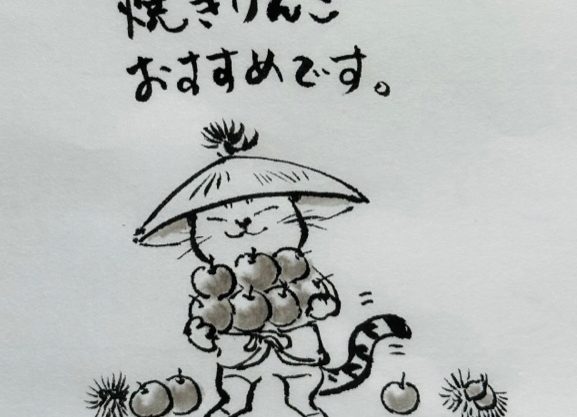 焼きりんご
おすすめです。